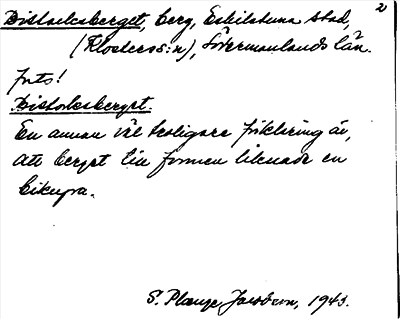 2
Bistocksberget, berg, Eskilstuna stad,
(Klosters s:n), Södermanlands län.
Jnfo!
Bistocksberget.
En annan väl troligare förklaring är,
att berget till formen liknade en
bikupa.
S. Plange Jacobson, 1943.